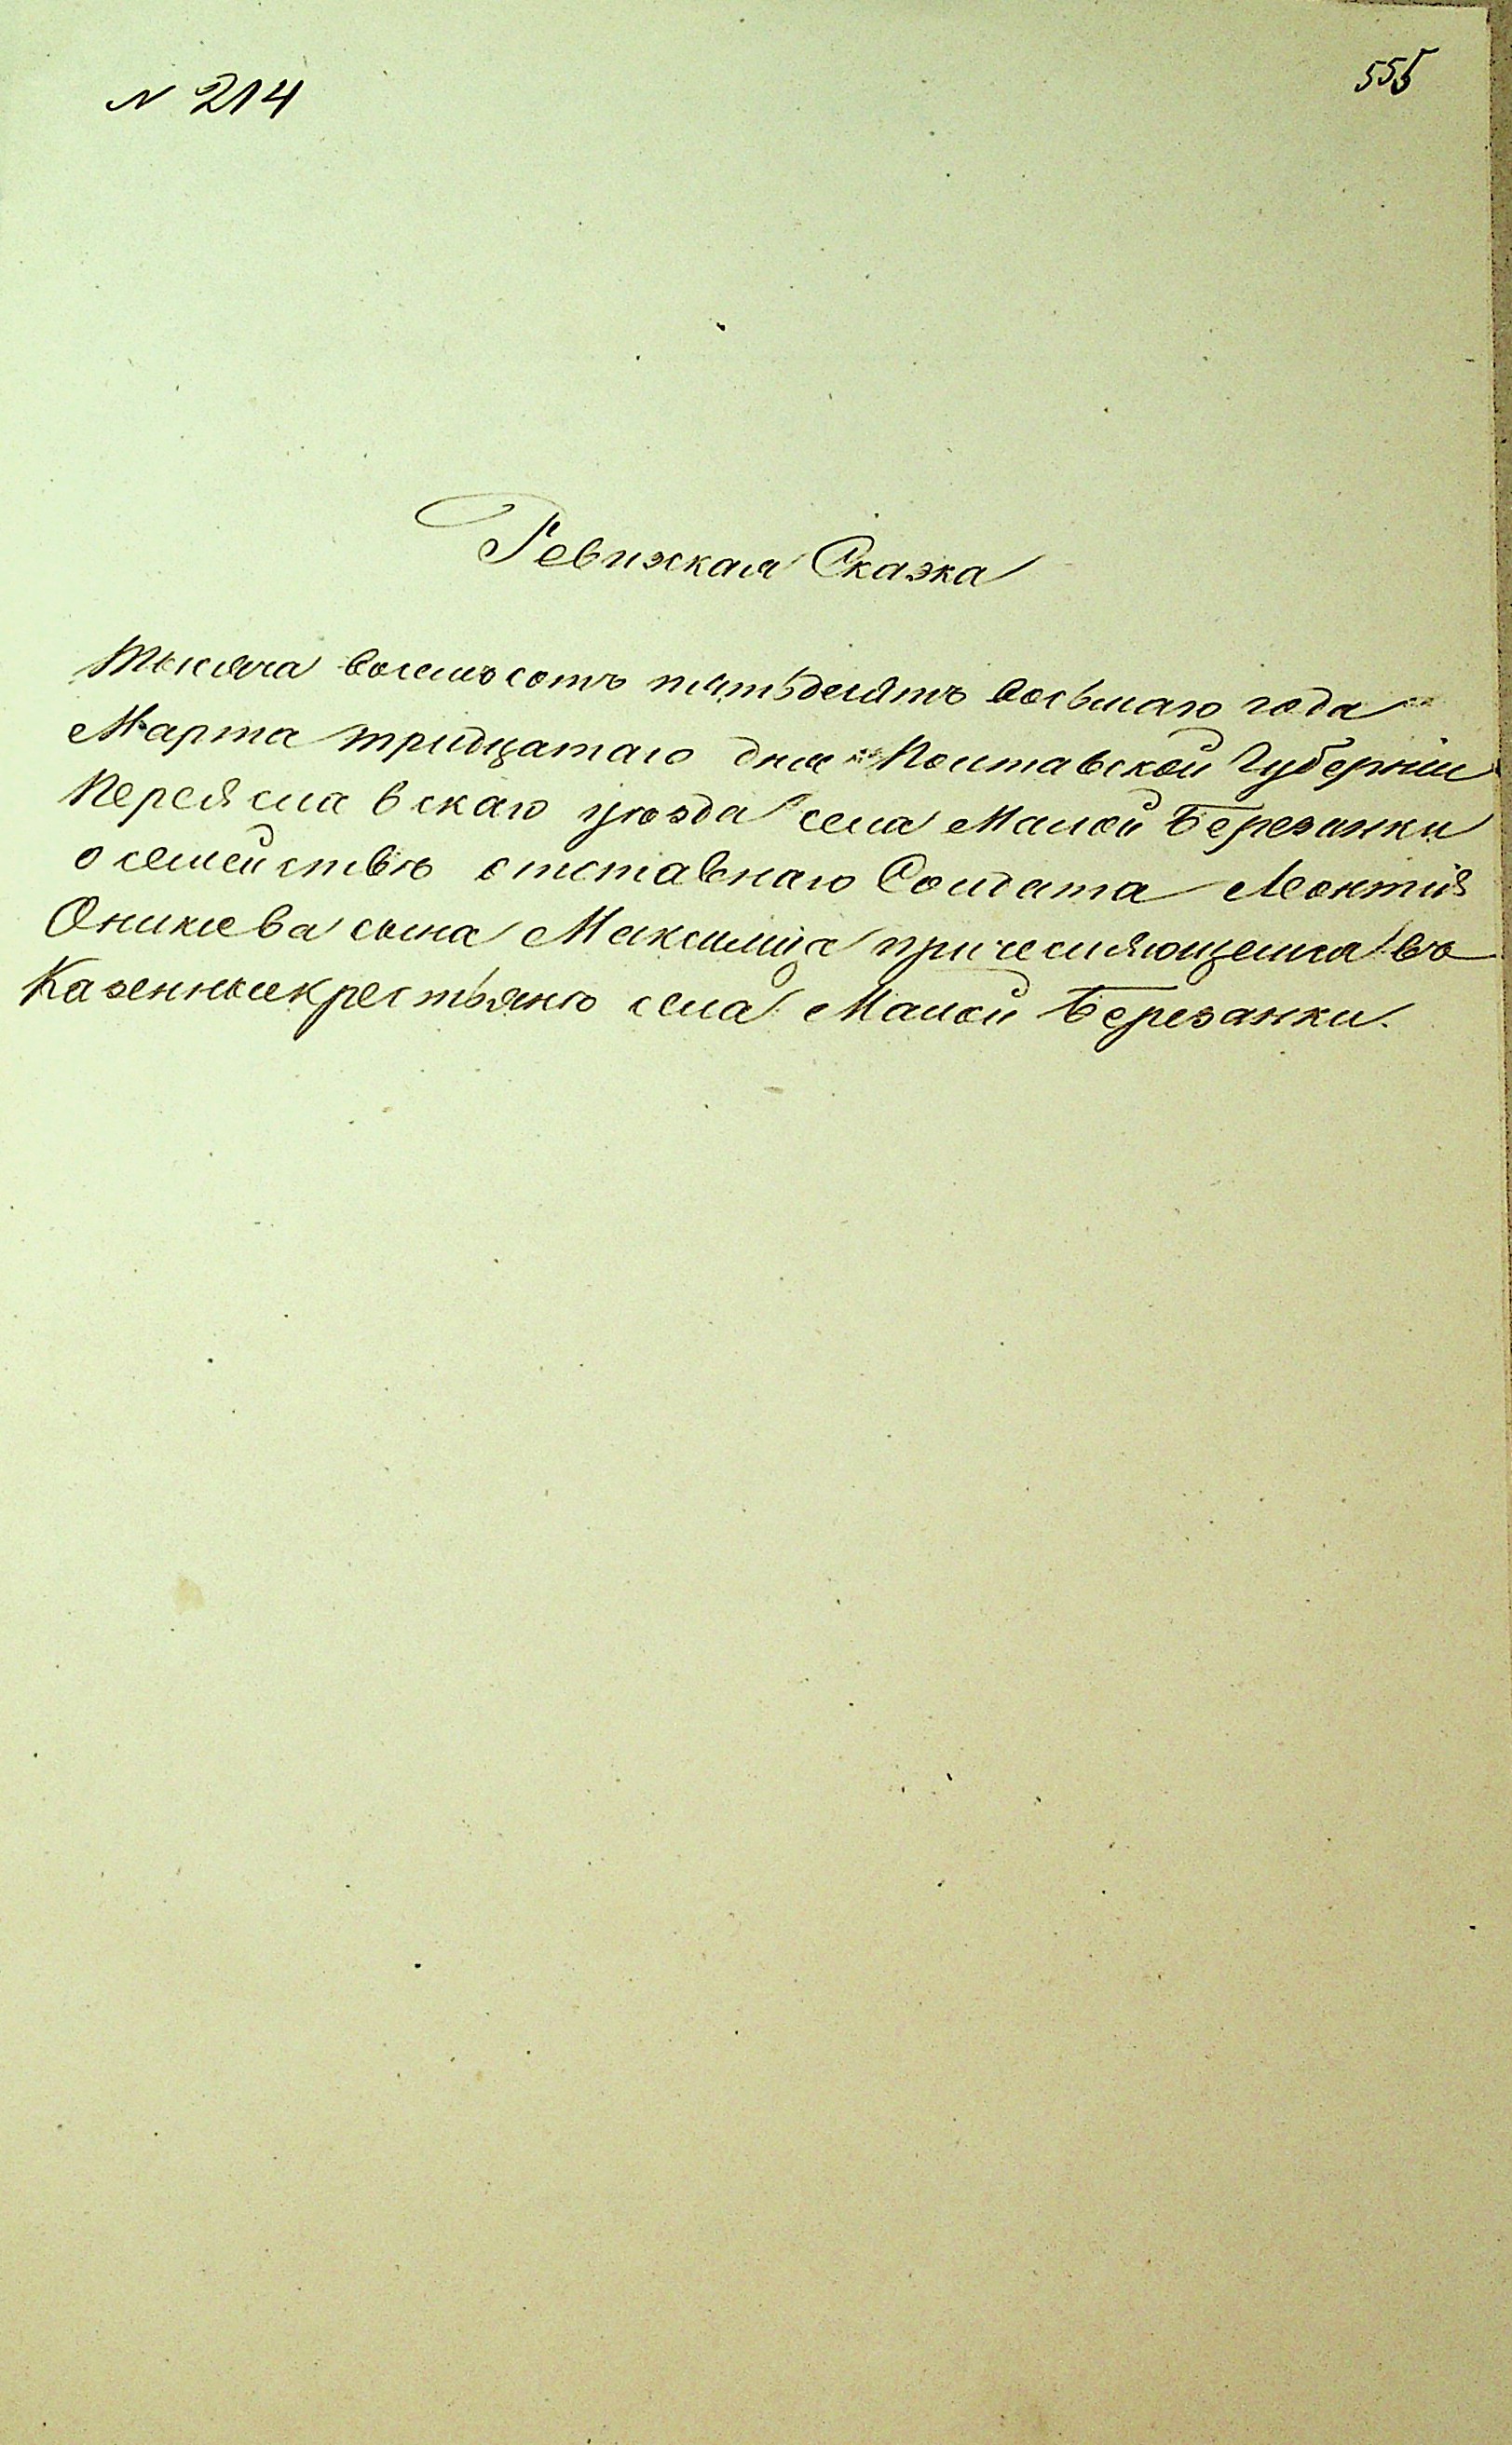 N 214
555
Ревижская Сказка
Тысяча восемьсотъ пятьдесятъ восьмаго года
Марта тридцатаго дня Полтавской Губерніи
Переяславскаго уѣзда села Малой Березанки
о семействѣ отставнаго Солдата Леонтія
Оникіева сына причесляющемся въ
Казенныекрестьяне села Малой Березанки.